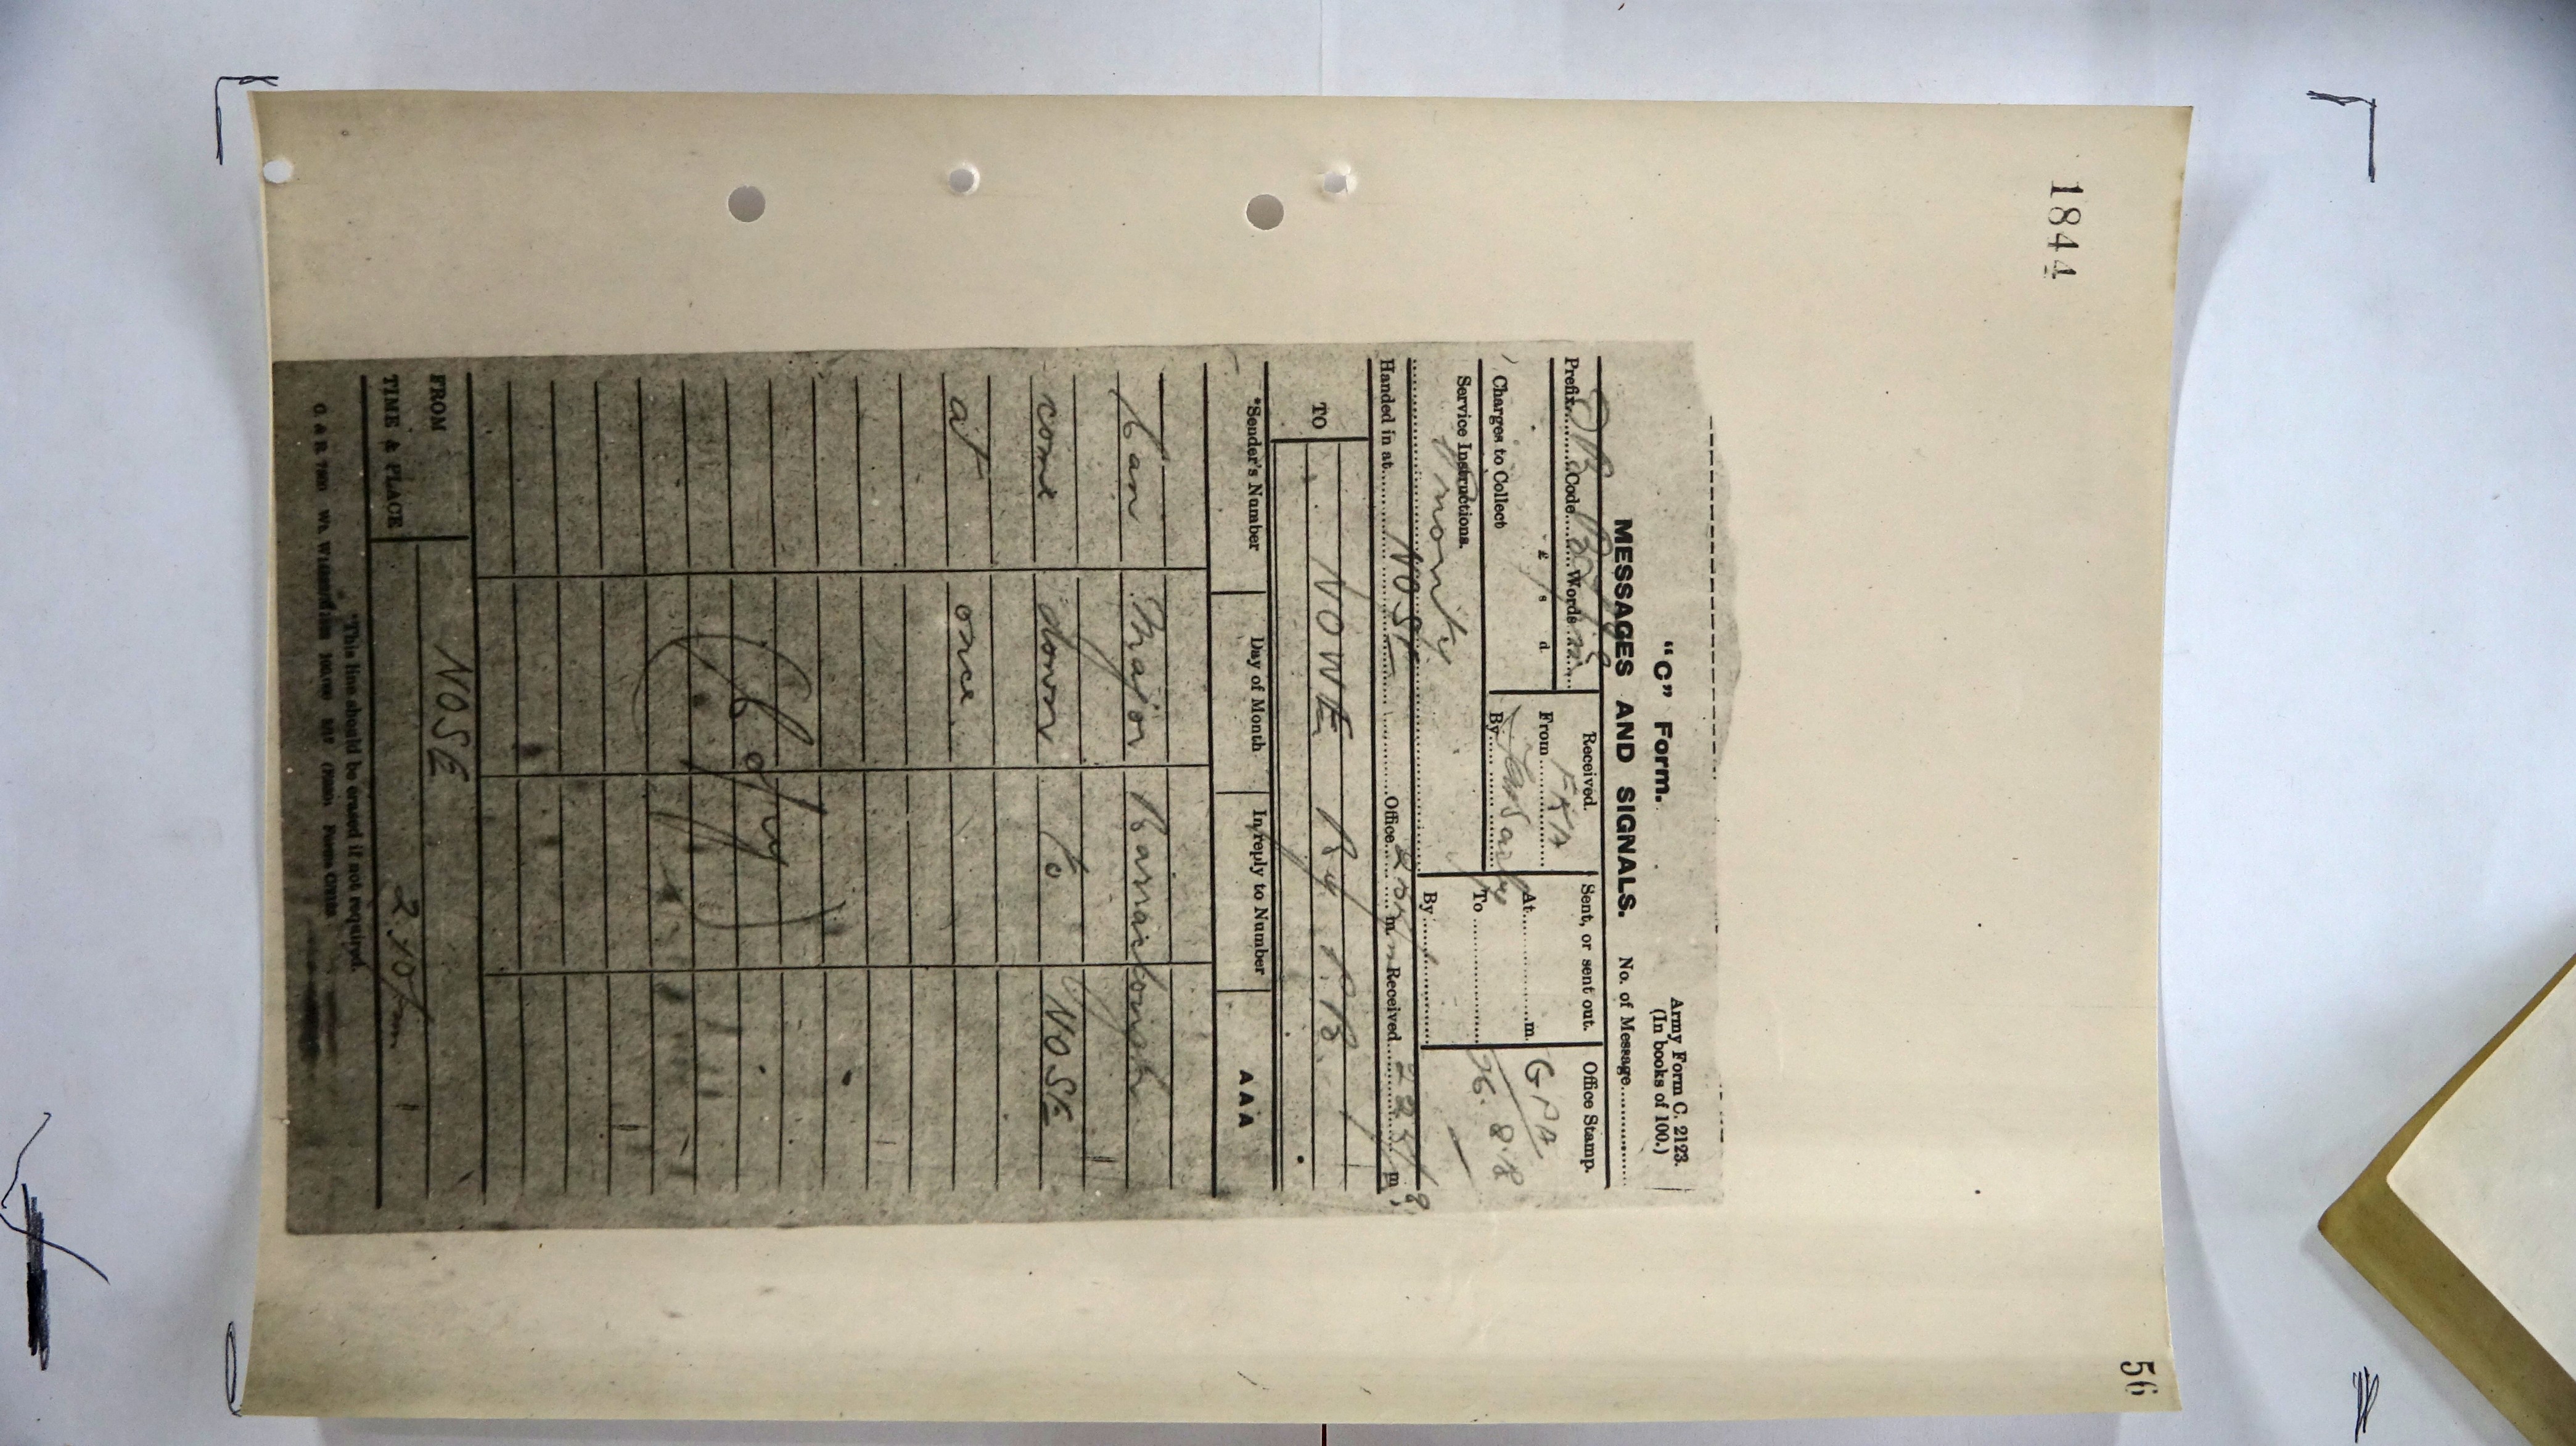 1844
56
"C" Form.
Army Form C. 2123.
(In books of 100.)
MESSAGES AND SIGNALS.
No. of Message..........
Prefix.........Code.........Words.........
Received.
Sent, or sent out.
Office Stamp.
£ s d.
From
At..........m.
GPA
Charges to Collect
By
To..........
26.8.18
Service Instructions.
Priority
By..........
Handed in at..... NOSE ..........Office..........m. Received..........m.
TO
NOWE Ry P.B.
*Sender's Number
Day of Month
In reply to Number
AAA
Can Major Barraclough
come down to NOSE
at once
(Copy)
FROM
NOSE
TIME & PLACE
*This line should be erased if not required.